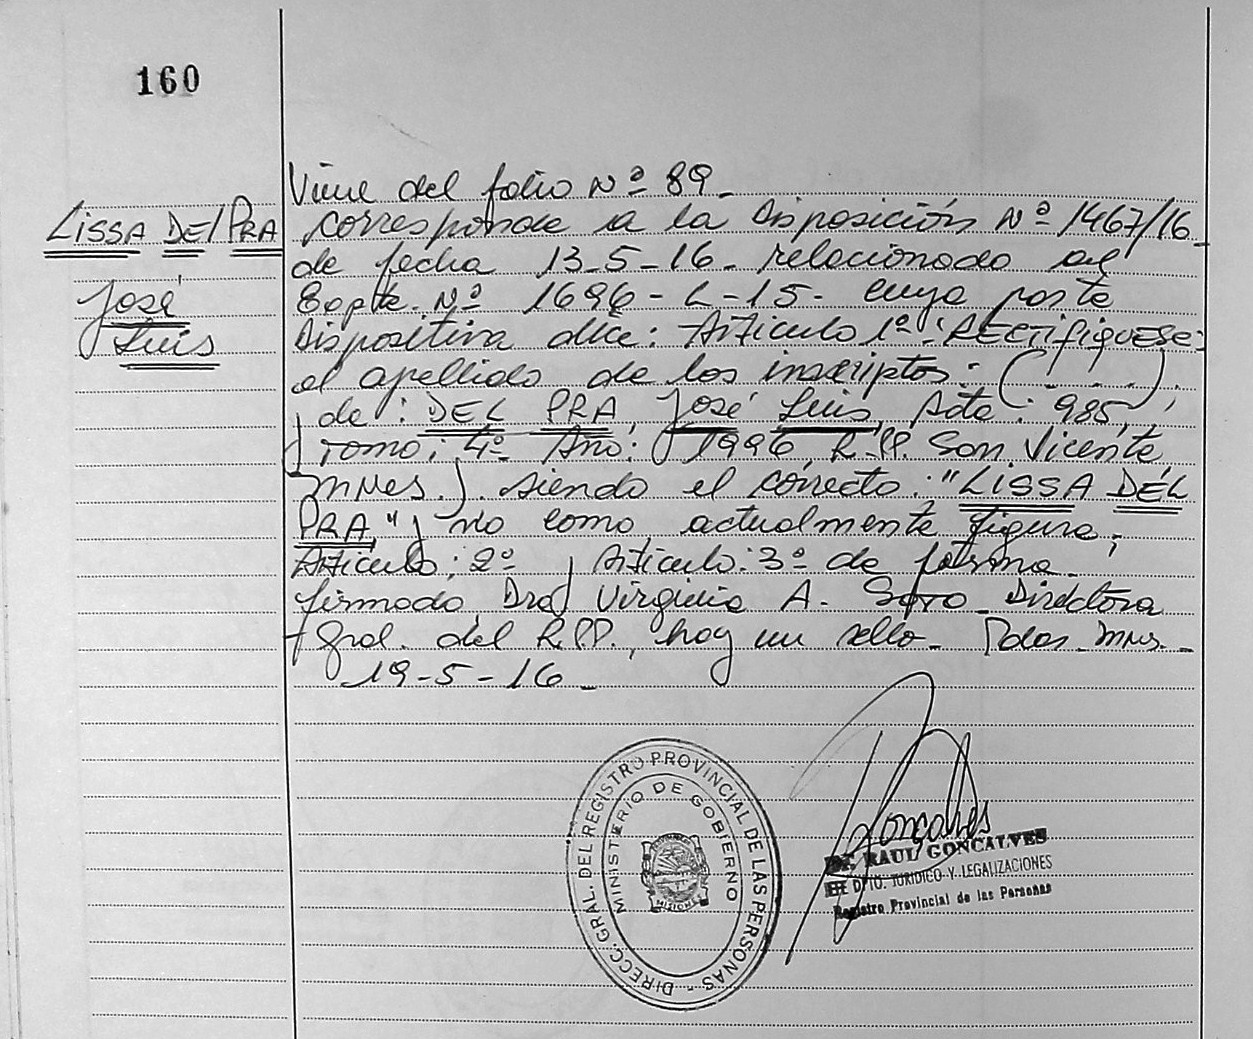 160
LISSA DEL PRA
José
Luis
Viene del folio Nº 89_
corresponde a la Disposición Nº 1467/16_
de fecha 13-5-16_ relacionado al
Expte. Nº 1696-L-15- cuya parte
Dispositiva dice: Artículo 1º: RECTIFIQUESE:
el apellido de los inscriptos: (- - - -).
de: DEL PRA, José Luis, Acta: 985,
Tomo: 4º Año: 1996, R.P.P. San Vicente
Mnes.). siendo el correcto: "LISSA DEL
PRA" y no como actualmente figura;
Artículo: 2º y Artículo: 3º de forma.
firmado, Dra Virginia A. Soto_ Directora
Gral. del R.P.P., hay un sello_ Pdas. Mns._
19-5-16_
DIRECC. GRAL. DEL REGISTRO PROVINCIAL DE LAS PERSONAS -
MINISTERIO DE GOBIERNO
MISIONES
Gonçalves
Dr. RAUL GONCALVES
JEFE DPTO. JURIDICO Y LEGALIZACIONES
Registro Provincial de las Personas